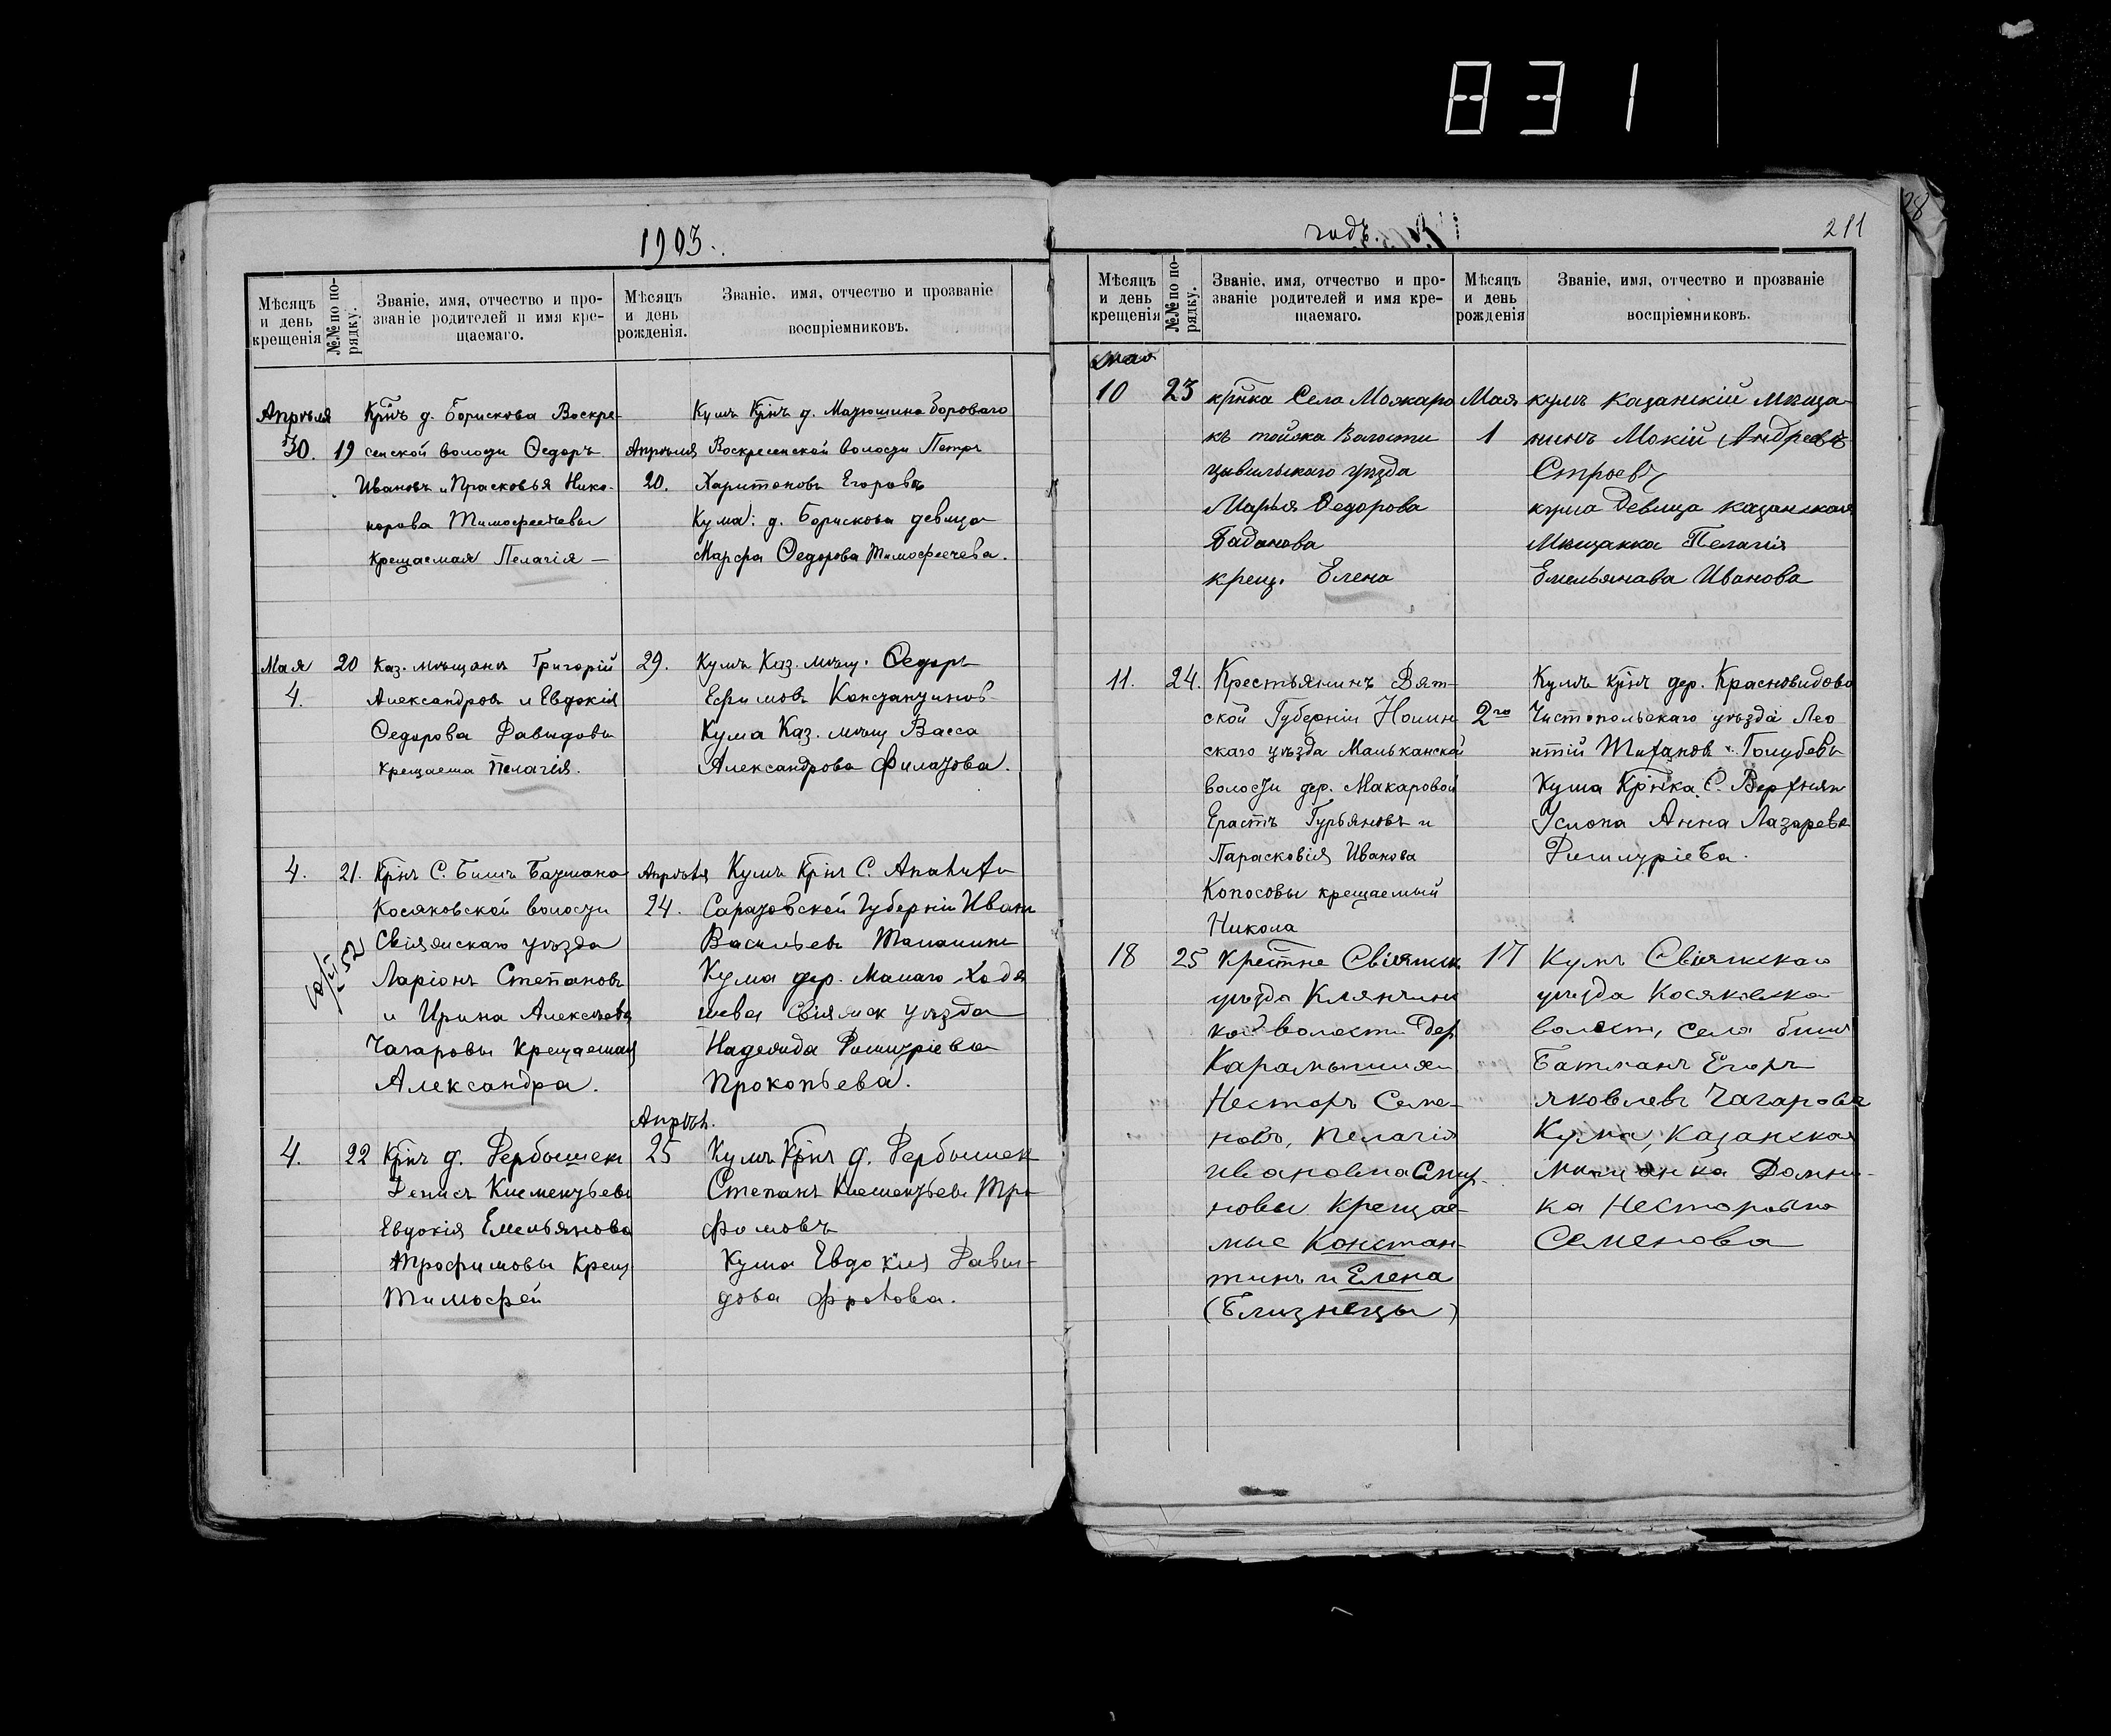 831
1903.
Мѣсяцъ и день крещенія
№№ по порядку.
Званіе, имя, отчество и прозваніе родителей и имя крещаемаго.
Мѣсяцъ и день рожденія.
Званіе, имя, отчество и прозваніе воспріемниковъ.
Апрѣля
30. 19
Крнъ д. Борискова Воскре-
сенской волости Федоръ
Ивановъ и Прасковья Нико-
норова Тимофеечевы
крещаемая Пелагія —
Апрѣля
20.
Кумъ Крнъ д. Матюшина Бороваго
Воскресенской волости Петръ
Харитоновъ Егоровъ
Кума: д. Борискова девица
Марфа Федорова Тимофеечева.
Мая 20
4.
Каз. мѣщанъ Григорій
Александровъ и Евдокія
Федорова Давыдовы
крещаема Пелагія.
29.
Кумъ Каз. мѣщ. Федоръ
Ефимовъ Константинов
Кума Каз. мѣщ Васса
Александрова Филатова.
4. 21.
Крнъ С. Бишъ Батмана
Косяковской волости
Свіяжскаго уѣзда
Ларіонъ Степановъ
и Ирина Алексѣева
Чагаровы крещаемая
Александра.
Апрѣля
24.
Кумъ Крнъ С.
Саратовской Губерніи Иванъ
Васильевъ
Кума дер. Малаго Ходя
шева Свіяжск уѣзда
Надежда Димитріева
Прокопьева.
4. 22
Крнъ д. Дербышек
Денисъ Клементьевъ
Евдокія Емельянова
Трофимовы Крещ
Тимофей
Апрѣл.
25
Кумъ Крнъ д. Дербышек
Степанъ Клементьевъ Тро
фимовъ
Кума Евдокия Давы-
дова Фролова.
годъ.
211
28
Мѣсяцъ и день крещенія
№№ по порядку.
Званіе, имя, отчество и прозваніе родителей и имя крещаемаго.
Мѣсяцъ и день рожденія
Званіе, имя, отчество и прозваніе воспріемниковъ.
Мая
10 23
крнка Села Можаро
къ Волости
цывильскаго уѣзда
Марья Федорова
Баданова
крещ. Елена
Мая
1
кумъ казанскій Мѣща
нинъ Мокій Андреевъ
Строевъ
кума Девица казанская
Мѣщанка Пелагія
Емельянава Иванова
11. 24.
Крестьянинъ Вят-
ской Губерніи Нолин
скаго уѣзда Малыканской
волости дер. Макаровой
Ерастъ Гурьяновъ и
Парасковія Иванова
Копосовы крещаемый
Никола
2го
Кумъ крнъ дер. Красновидово
Чистопольскаго уѣзда Лео
нтій Голубевъ
Кума Крнка С. Верхняго
Услона Анна Лазарева
Димитріева.
18 25
Крестне Свіяжск
уѣзда Клянчинс
кой волости Дер
Карамышиха
Несторъ Семе-
новъ, Пелагія
Ивановна
новы Крещае-
мые Констан-
тинъ и Елена
(Близнецы)
17
Кумъ Свіяжскаго
уѣзда Косяковска
волост, села биш
Батманъ Егоръ
Яковлевъ Чагаровъ
Кума, Казанская
Мѣщанка Домни-
ка Несторовна
Семенова